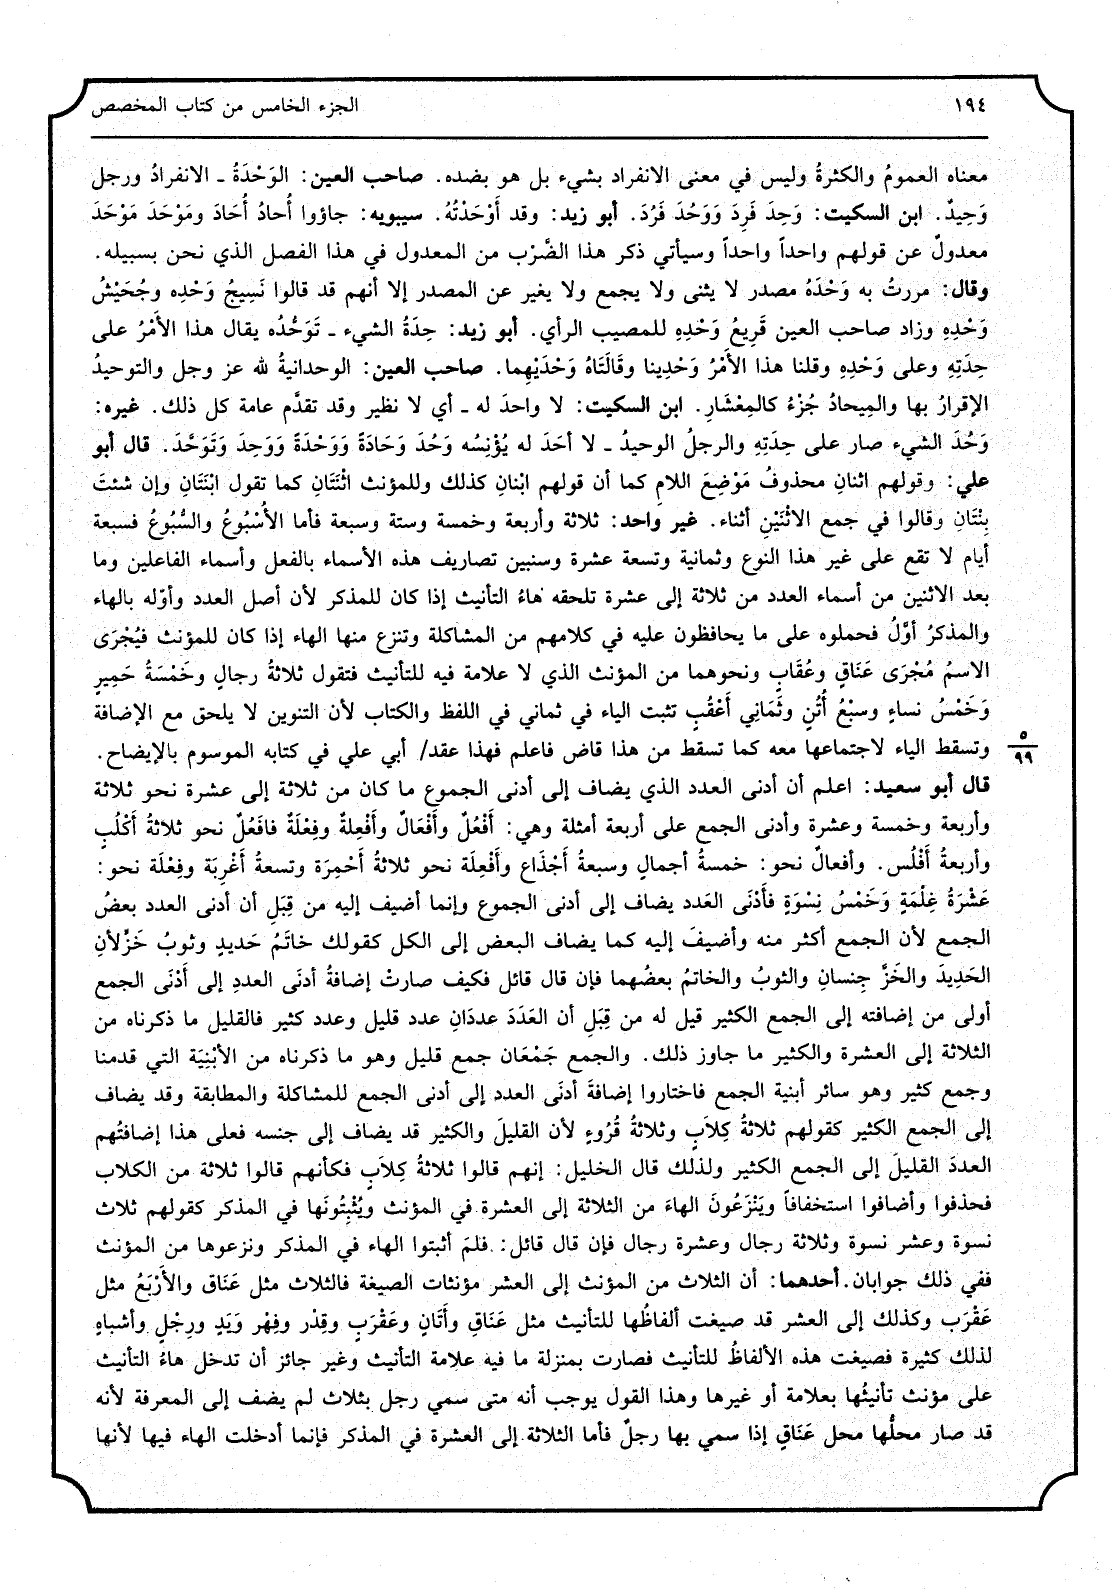 ١٩٤
الجزء الخامس من كتاب المخصص
معناه العمومُ والكثرةُ وليس في معنى الانفراد بشيء بل هو بضده. صاحب العين: الوَحْدَةُ ـ الانفرادُ ورجل
وَحِيدٌ. ابن السكيت: وَحِدَ فَرِدَ وَوَحُدَ فَرُدَ. أبو زيد: وقد أَوْحَدْتُهُ. سيبويه: جاؤوا أُحادُ أُحَادَ ومَوْحَدَ مَوْحَدَ
معدولٌ عن قولهم واحداً واحداً وسيأتي ذكر هذا الضَّرْب من المعدول في هذا الفصل الذي نحن بسبيله.
وقال: مررتُ به وَحْدَهُ مصدر لا يثنى ولا يجمع ولا يغير عن المصدر إلا أنهم قد قالوا نَسِيجُ وَحْدِه وجُحَيْشُ
وَحْدِهِ وزاد صاحب العين قَرِيعُ وَحْدِهِ للمصيب الرأي. أبو زيد: حِدَةُ الشيء ـ تَوَحُّدُه يقال هذا الأَمْرُ على
حِدَتِهِ وعلى وَحْدِهِ وقلنا هذا الأَمْرُ وَحْدِينا وقَالَتَاهُ وَحْدَيْهِما. صاحب العين: الوحدانيةُ لله عز وجل والتوحيدُ
الإقرارُ بها والمِيحادُ جُزْءُ كالمِعْشَارِ. ابن السكيت: لا واحدَ له ـ أي لا نظير وقد تقدَّم عامة كل ذلك. غيره:
وَحُدَ الشيء صار على حِدَتِهِ والرجلُ الوحيدُ ـ لا أحَدَ له يُؤْنِسُه وَحُدَ وَحَادَةً وَوَحْدَةً وَوَحِدَ وَتَوَحَّدَ. قال أبو
علي: وقولهم اثنانِ محذوفُ مَوْضِعَ اللامِ كما أن قولهم ابْنانِ كذلك وللمؤنث اثْنَتَانِ كما تقول ابْنَتَانِ وإن شئتَ
بِنْتَانِ وقالوا في جمع الاثْنَيْنِ أثناء. غير واحد: ثلاثة وأربعة وخمسة وستة وسبعة فأما الأُسْبُوعُ والسُّبُوعُ فسبعة
أيام لا تقع على غير هذا النوع وثمانية وتسعة عشرة وسنبين تصاريف هذه الأسماء بالفعل وأسماء الفاعلين وما
بعد الاثنين من أسماء العدد من ثلاثة إلى عشرة تلحقه هاءُ التأنيث إذا كان للمذكر لأن أصل العدد وأوّله بالهاء
والمذكرُ أوَّلُ فحملوه على ما يحافظون عليه في كلامهم من المشاكلة وتنزع منها الهاء إذا كان للمؤنث فيُجْرَى
الاسمُ مُجْرَى عَنَاقٍ وعُقَابٍ ونحوهما من المؤنث الذي لا علامة فيه للتأنيث فتقول ثلاثةُ رجالٍ وخَمْسَةُ حَمِيرٍ
وَخَمْسُ نساءٍ وسبْعُ أُتُنٍ وثَمَانِي أَعْقُبٍ تثبت الياء في ثماني في اللفظ والكتاب لأن التنوين لا يلحق مع الإضافة
وتسقط الياء لاجتماعها معه كما تسقط من هذا قاض فاعلم فهذا عقد/ أبي علي في كتابه الموسوم بالإيضاح.
٥
٩٩
قال أبو سعيد: اعلم أن أدنى العدد الذي يضاف إلى أدنى الجموع ما كان من ثلاثة إلى عشرة نحو ثلاثة
وأربعة وخمسة وعشرة وأدنى الجمع على أربعة أمثلة وهي: أَفْعُلٌ وأَفْعَالٌ وأَفْعِلةٌ وفِعْلَةٌ فافَعُلٌ نحو ثلاثةُ أَكْلُبٍ
وأربعةُ أَفْلُس. وأفعالٌ نحو: خمسةُ أجمالٍ وسبعةُ أجْذَاع وأَفْعِلَة نحو ثلاثةُ أَحْمِرَة وتسعةُ أَغْرِبَة وفِعْلَة نحو:
عَشْرَةُ غِلْمَةٍ وَخَمْسُ نِسْوَةٍ فأَدْنَى العَدد يضاف إلى أدنى الجموع وإنما أضيف إليه من قِبَلِ أن أدنى العدد بعضُ
الجمع لأن الجمع أكثر منه وأضيفَ إليه كما يضاف البعض إلى الكل كقولك خاتَمُ حَديدٍ وثوبُ خَزٍّلأن
الحَدِيدَ والخَزَّ جِنسانِ والثوبُ والخاتمُ بعضُهما فإن قال قائل فكيف صارتْ إضافةُ أدنَى العددِ إلى أَدْنَى الجمع
أولى من إضافته إلى الجمع الكثير قيل له من قِبَلِ أن العَدَدَ عددَانِ عدد قليل وعدد كثير فالقليل ما ذكرناه من
الثلاثة إلى العشرة والكثير ما جاوز ذلك. والجمع جَمْعَان جمع قليل وهو ما ذكرناه من الأبْنِيَة التي قدمنا
وجمع كثير وهو سائر أبنية الجمع فاختاروا إضافةَ أدنَى العدد إلى أدنى الجمع للمشاكلة والمطابقة وقد يضاف
إلى الجمع الكثير كقولهم ثلاثةُ كِلاَبٍ وثلاثةُ قُرُوءٍ لأن القليلَ والكثير قد يضاف إلى جنسه فعلى هذا إضافتُهم
العددَ القليلَ إلى الجمع الكثير ولذلك قال الخليل: إنهم قالوا ثلاثةُ كِلاَبٍ فكأنهم قالوا ثلاثة من الكلاب
فحذفوا وأضافوا استخفافاً ويَنْزَعُونَ الهاءَ من الثلاثة إلى العشرة في المؤنث ويُثْبِتُونَها في المذكر كقولهم ثلاث
نسوة وعشر نسوة وثلاثة رجال وعشرة رجال فإن قال قائل: فلمَ أثبتوا الهاء في المذكر ونزعوها من المؤنث
ففي ذلك جوابان. أحدهما: أن الثلاث من المؤنث إلى العشر مؤنثات الصيغة فالثلاث مثل عَنَاق والأَرْبَعُ مثل
عَقْرَب وكذلك إلى العشر قد صيغت ألفاظُها للتأنيث مثل عَنَاقِ وأَتَانٍ وعَقْرَبٍ وقِدْر وفِهْر وَيَدٍ ورِجْلٍ وأشباهٍ
لذلك كثيرة فصيغت هذه الألفاظُ للتأنيث فصارت بمنزلة ما فيه علامة التأنيث وغير جائز أن تدخل هاءُ التأنيث
على مؤنث تأنيثُها بعلامة أو غيرها وهذا القول يوجب أنه متى سمي رجل بثلاث لم يضف إلى المعرفة لأنه
قد صار محلُّها محل عَنَاقٍ إذا سمي بها رجلٌ فأما الثلاثة إلى العشرة في المذكر فإنما أدخلت الهاء فيها لأنها